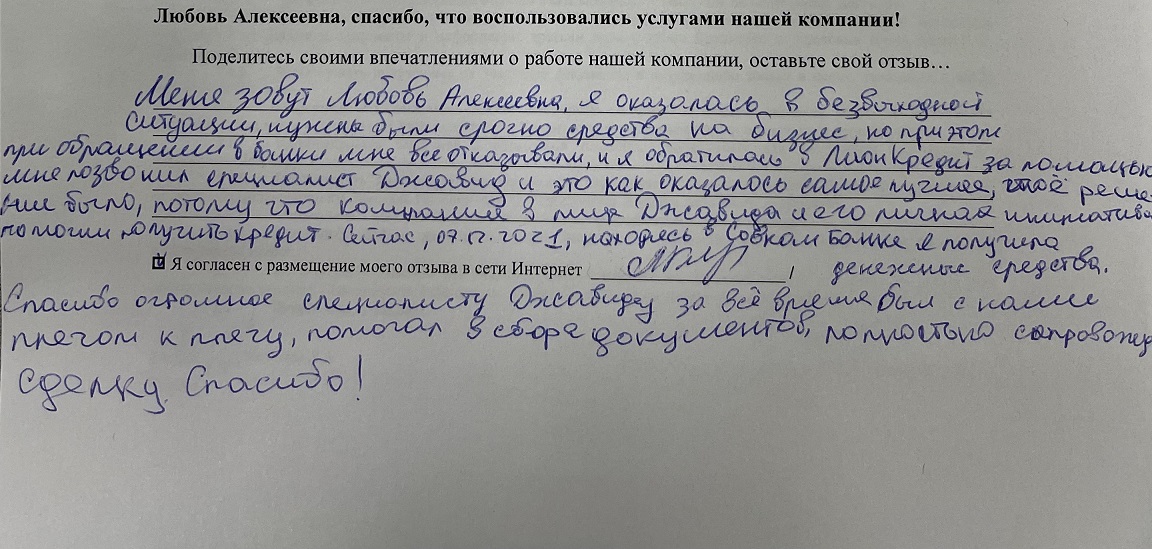 Любовь Алексеевна, спасибо, что воспользовались услугами нашей компании!
Поделитесь своими впечатлениями о работе нашей компании, оставьте свой отзыв…
Меня зовут Любовь Алексеевна, я оказалась в безвыходной
ситуации, нужны были срочно средства на бизнес, но при этом
при обращении в банки мне все отказывали, и я обратилась в ЛионКредит за помощью
мне позвонил специалист Джавид и это как оказалось самое лучшее, моё реше-
ние было, потому что компания в лице Джавида и его личная инициатива
помогли получить кредит. Сейчас, 07.12.2021, находясь в Совком Банке я получила
Я согласен с размещение моего отзыва в сети Интернет , денежные средства.
Спасибо огромное специалисту Джавиду за всё время был с нами
плечом к плечу, помогал в сборе документов, полностью сопровожд
сделку. Спасибо!